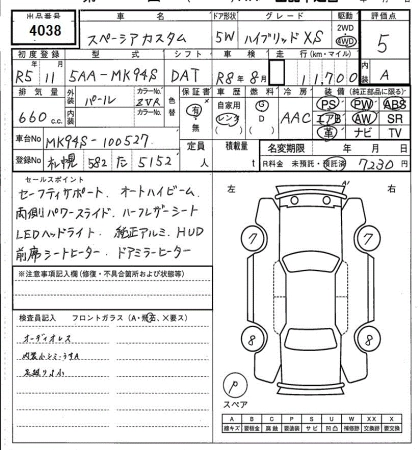 出品番号 車名 ドア形状 グレード 駆動 評価点
4038 スペーシアカスタム 5W ハイブリッドXS 2WD 4WD 5
初度登録 型式 シフト 車検 走行 (km・マイル) 内装
R5 11 5AA-MK94S DAT R8年8月 11,700 A
排気量 外装 パール カラーNo. ZVR 色替 保証書 車歴 燃料 冷房 装備 (純正部品に限る)
660c.c. 内装 カラーNo. 有・無 自家用 レンタ G D AAC PS PW ABS
エアB AW SR
革 ナビ TV
車台No MK94S-100527 定員 人 積載量 t 名変期限 年 月 日
登録No 札幌 582 た 5152 R料金 未預託・預託済 7230円
セールスポイント
セーフティサポート、オートハイビーム
両側パワースライド、ハーフレザーシート
LEDヘッドライト、純正アルミ、HUD
前席シートヒーター、ドアミラーヒーター
※注意事項記入欄(修復・不具合箇所および状態等)
検査員記入 フロントガラス(A・飛石、X要ス)
オーディオレス
左 右
7 7
8 8
スペア
A B C P S U W X XX X
線キズ 腐蝕 要塗装 サビ 凹凸 補修跡 交換跡 要交換